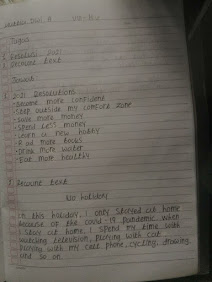 Tugas
1. Resolusi 2021
2. Recount text
Jawab
1. 2021 Resolutions
- Become more confident
- Step outside my comfort zone
- Save more money
- Spend less money
- Learn a new hobby
- Read more books
- Drink more water
- Eat more healthy
2. Recount text
No holiday
In this holiday, I only stayed at home
because of the covid-19 pandemic when
I stay at home, I spend my time with
watching television, playing with cat
playing with my cell phone, cycling, drawing
and so on.